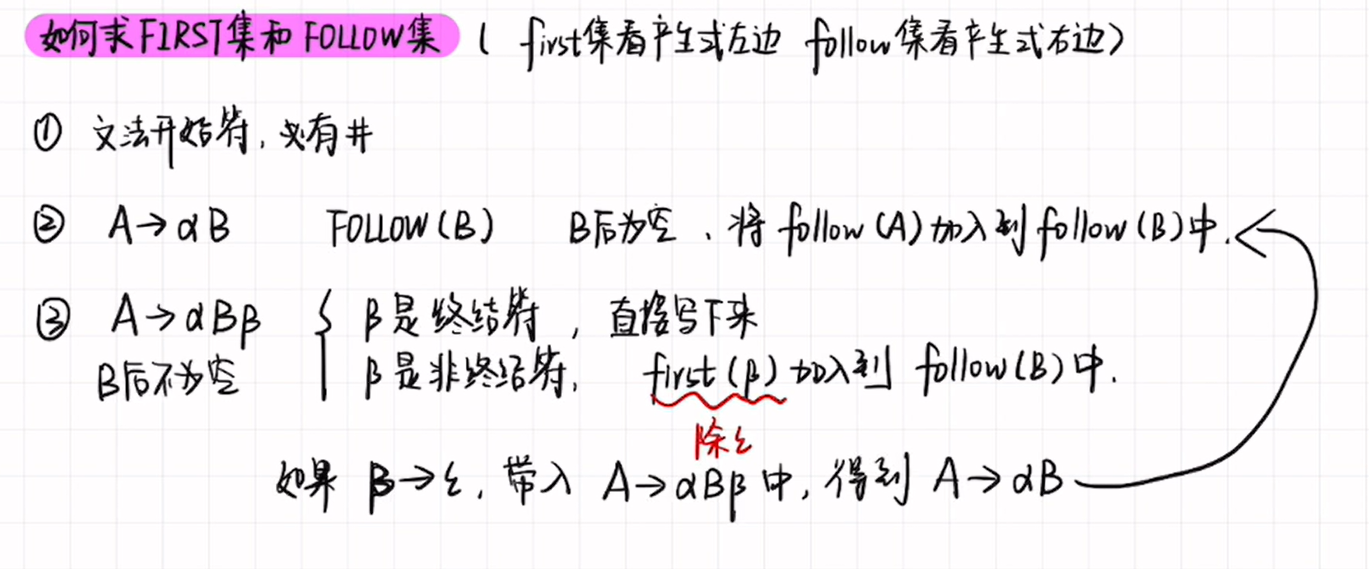 如何求FIRST集和FOLLOW集 ( first集看产生式左边 follow集看产生式右边)
① 文法开始符,必有#
② A→αB FOLLOW(B) B后为空、将follow(A)加入到follow(B)中.
③ A→αBβ { β是终结符,直接写下来
B后不为空 β是非终结符, first(β)加入到 follow(B)中.
除ε
如果 β→ε, 带入 A→αBβ中,得到 A→αB